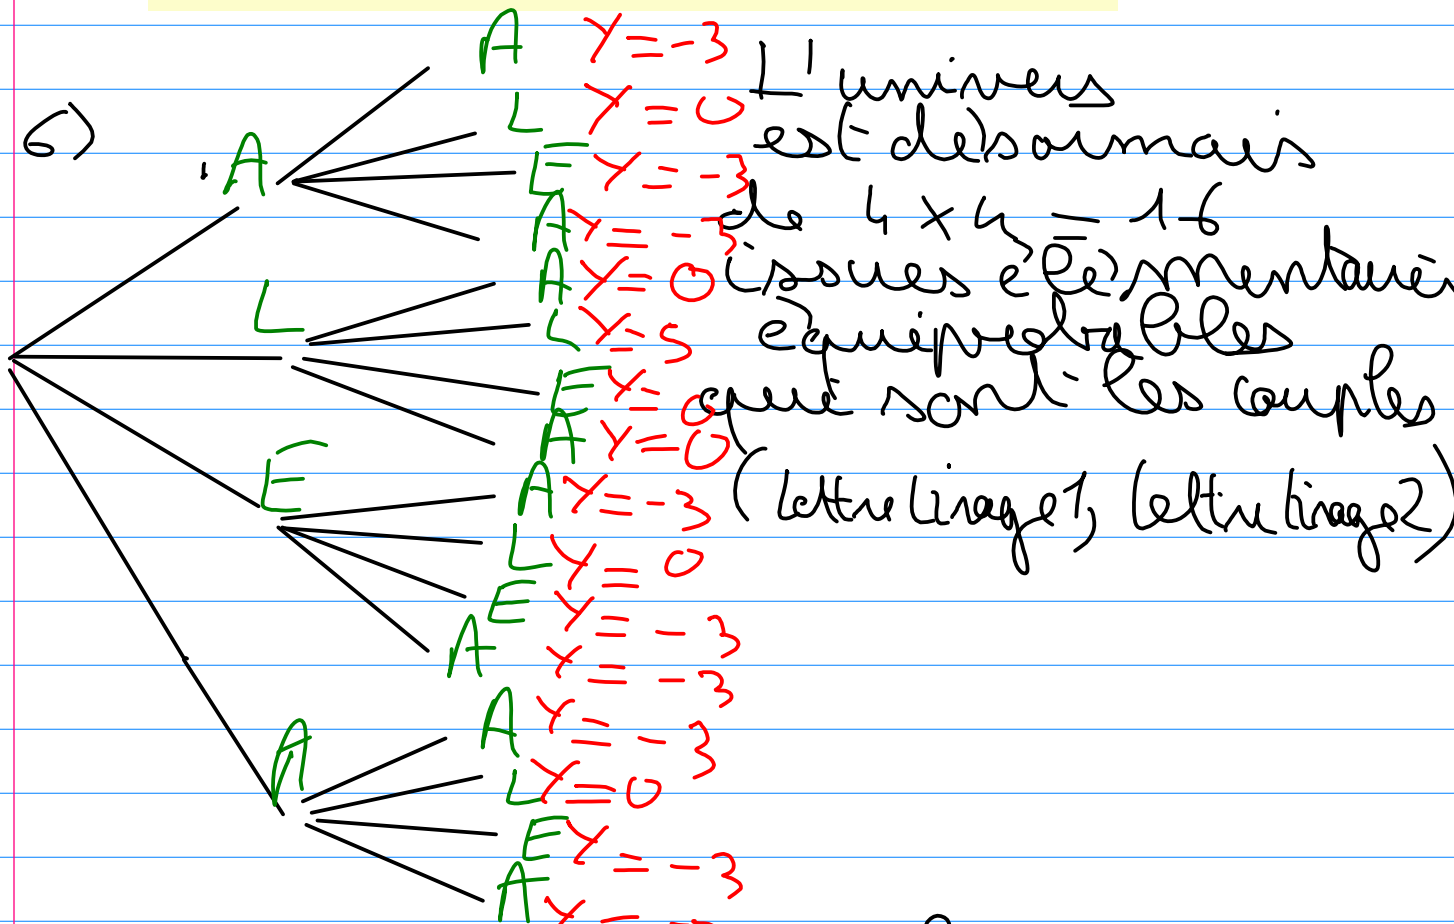 6)
A
A Y = -3
L Y = 0
E Y = -3
A Y = -3
L
A Y = 0
L Y = 5
E Y = 0
A Y = 0
E
A Y = -3
L Y = 0
E Y = -3
A Y = -3
A
A Y = -3
L Y = 0
E Y = -3
A Y =
L'univers
est désormais
de 4 × 4 = 16
issues élémentaires
équiprobables
qui sont les couples
(lettre tirage 1, lettre tirage 2)